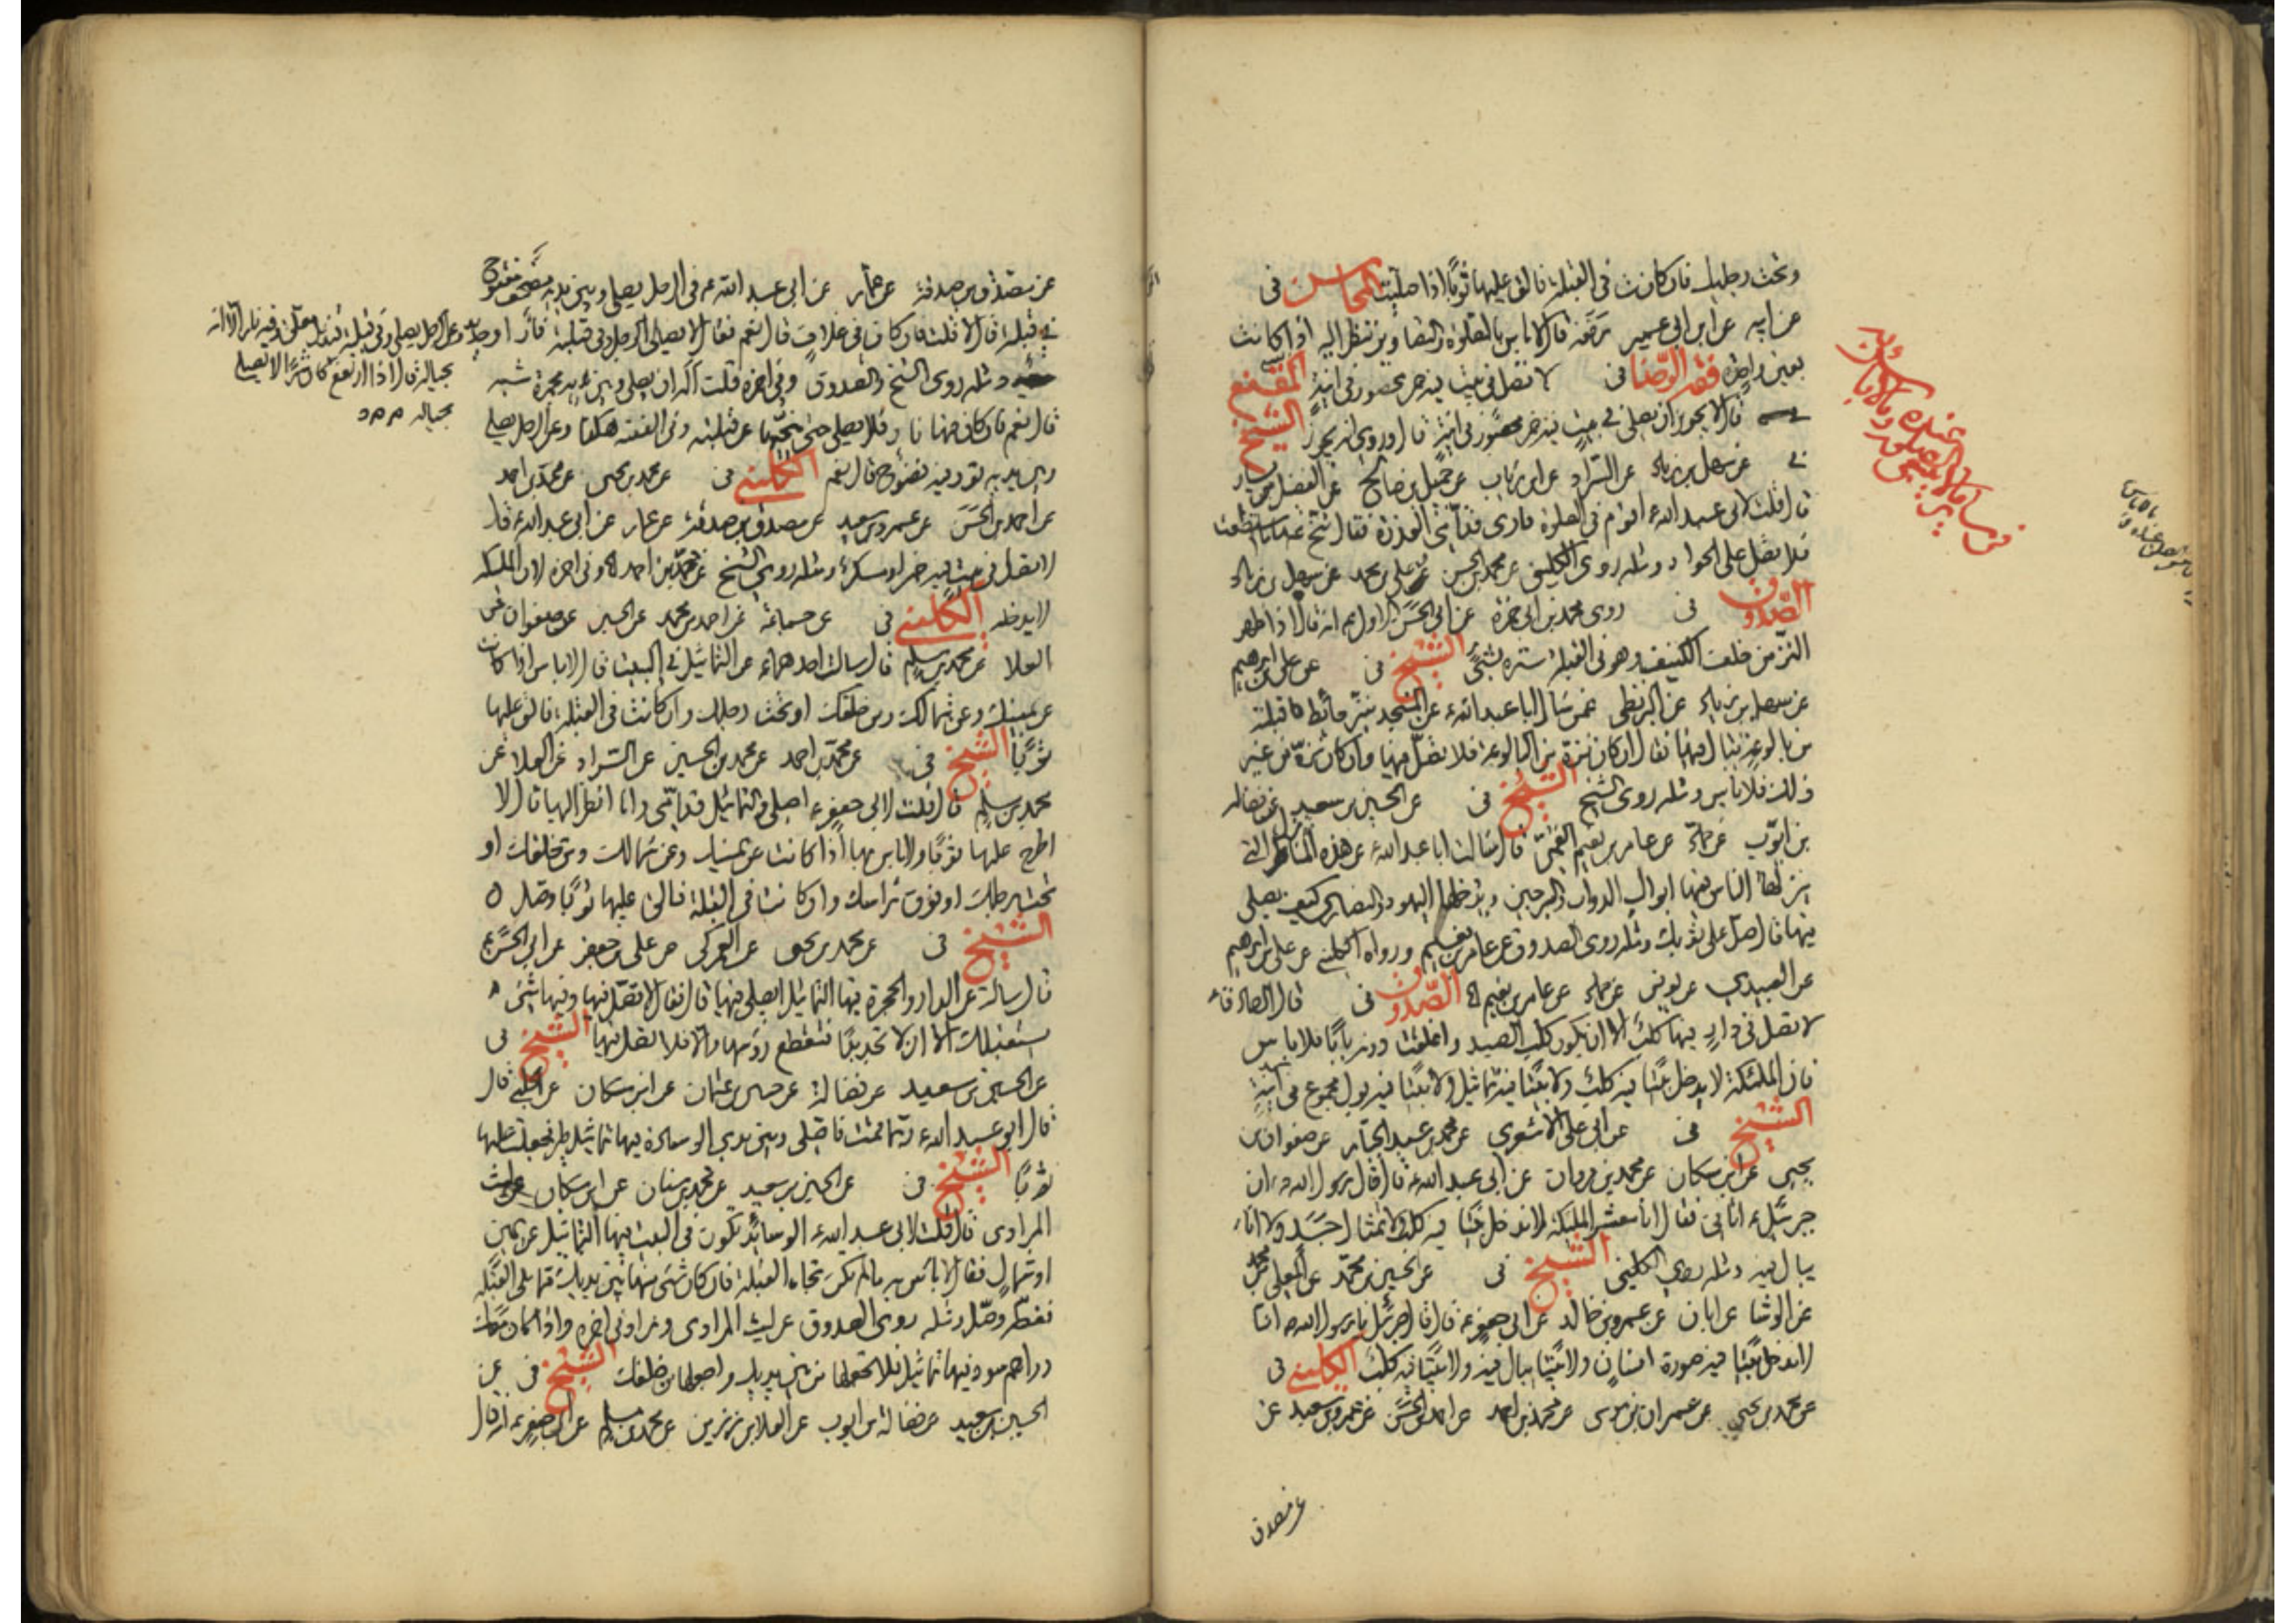 وتحت رجليك فان كانت في القبلة فالق عليها ثوبا اذا صليت المحاسن في
عن ابيه عن ابن ابي عمير رفعه قال لا باس بالصلوة والتصاوير تنظر اليه اذا كانت
بعين واحدة فقه الرضا في لا تصل في بيت فيه خمر محصور في انية المقنع
قال لا يجوز ان يصلى في بيت فيه خمر محصور في انية قال وروى انه يجوز الشيخ
في عن سهل بن زياد عن السراد عن ابن رئاب عن جميل بن صالح عن الفضيل بن يسار
قال قلت لابي عبد الله ع اقوم في الصلوة فارى قدامي في القبلة العذرة فقال تنح عنها ما استطعت
فلا تصل على الجواد ومثله روى الكليني عن محمد بن الحسن عن علي بن محمد عن سهل بن زياد
الصدوق في روى محمد بن ابي حمزة عن ابي الحسن الاول ع انه قال اذا ظهر
النز من خلف الكنيف وهو في القبلة ستره بشئ الشيخ في عن علي بن ابرهيم
عن سهل بن زياد عن البزنطي عمن سال ابا عبد الله ع عن المسجد ينز حائط قبلته
من بالوعة يبال فيها فقال ان كان نزه من البالوعة فلا تصل فيها وان كان نزه من غير
ذلك فلا باس ومثله روى الشيخ الشيخ في عن الحسين بن سعيد عن فضالة
بن ايوب عن حماد عن عامر بن نعيم القمي قال سالت ابا عبد الله ع عن هذه المنازل التي
ينزلها الناس فيها ابوال الدواب والسرجين ويدخلها اليهود والنصارى كيف يصلى
فيها قال صل على ثوبك ومثله روى الصدوق عن عامر بن نعيم ورواه الكليني عن علي بن ابرهيم
عن العبيدي عن يونس عن حماد عن عامر بن نعيم الصدوق في قال الصادق ع
لا تصل في دار فيها كلب الا ان يكون كلب الصيد واغلقت دونه بابا فلا باس
فان الملئكة لا يدخل بيتا فيه كلب ولا بيتا فيه تماثيل ولا بيتا فيه بول مجموع في انية
الشيخ في عن ابي علي الاشعري عن محمد بن عبد الجبار عن صفوان بن
يحيى عن ابن مسكان عن محمد بن مروان عن ابي عبد الله ع قال قال رسول الله ص ان
جبرئيل ع اتاني فقال انا معشر الملئكة لا ندخل بيتا فيه كلب ولا تمثال جسد ولا اناء
يبال فيه ومثله روى الكليني الشيخ في عن الحسين بن محمد عن المعلى بن محمد
عن الوشا عن ابان عن عمرو بن خالد عن ابي جعفر ع قال قال جبرئيل يا رسول الله ص انا
لا ندخل بيتا فيه صورة انسان ولا بيتا يبال فيه ولا بيتا فيه كلب الكليني في
عن محمد بن يحيى عن عمران بن موسى عن محمد بن احمد عن احمد بن الحسن عن عمرو بن سعيد عن
عن مصدق
عن مصدق بن صدقة عن عمار عن ابي عبد الله ع في الرجل يصلي وبين يديه مصحف مفتوح
في قبلته قال لا قلت فان كان في غلاف قال نعم فقال لا يصلي الرجل وفي قبلته نار او حديد
ومثله روى الشيخ والصدوق وفي اخره قلت اله ان يصلي وبين يديه مجمرة شبه
قال نعم فان كان فيها نار فلا يصلي حتى ينحيها عن قبلته وفي الفقيه هكذا وعن الرجل يصلي
وبين يديه تور فيه نضوح قال نعم الكليني في عن محمد بن يحيى عن محمد بن احمد
عن احمد بن الحسن عن عمرو بن سعيد عن مصدق بن صدقة عن عمار عن ابي عبد الله ع قال
لا تصل في بيت فيه خمر او مسكر ومثله روى الشيخ عن محمد بن احمد وفي اخره لان الملئكة
لا يدخله الكليني في عن جماعة عن احمد بن محمد عن الحسين عن صفوان عن
العلا عن محمد بن مسلم قال سالت احدهما ع عن التماثيل في البيت قال لا باس اذا كانت
عن يمينك وعن شمالك ومن خلفك او تحت رجليك وان كانت في القبلة فالق عليها
ثوبا الشيخ في عن محمد بن احمد عن محمد بن الحسين عن السراد عن العلا عن
محمد بن مسلم قال قلت لابي جعفر ع اصلي والتماثيل قدامي وانا انظر اليها قال لا
اطرح عليها ثوبا ولا باس بها اذا كانت عن يمينك وعن شمالك ومن خلفك او
تحت رجلك او فوق راسك وان كانت في القبلة فالق عليها ثوبا وصل
الشيخ في عن محمد بن يحيى عن العمركي عن علي بن جعفر عن ابي الحسن ع
قال سالته عن الدار والحجرة فيها التماثيل ايصلى فيها قال فقال لا تصل فيها وفيها شئ
يستقبلك الا ان لا تجد بدا فتقطع رؤسها والا فلا تصل فيها الشيخ في
عن الحسين بن سعيد عن فضالة عن حسين بن عثمان عن ابن مسكان عن الحلبي قال
قال ابو عبد الله ع ربما قمت فاصلي وبين يدي الوسادة فيها تماثيل طير فجعلت عليها
ثوبا الشيخ في عن الحسين بن سعيد عن محمد بن سنان عن ابن مسكان عن ليث
المرادي قال قلت لابي عبد الله ع الوسائد تكون في البيت فيها التماثيل عن يمين
او شمال فقال لا باس به ما لم تكن تجاه القبلة فان كان شئ منها بين يديك مما يلي القبلة
فغطه وصل ومثله روى الصدوق عن ليث المرادي وزاد في اخره واذا كان معك
دراهم سود فيها تماثيل فلا تجعلها من بين يديك واجعلها من خلفك الشيخ في عن
الحسين بن سعيد عن فضالة بن ايوب عن العلا بن رزين عن محمد بن مسلم عن ابي جعفر ع انه قال
وعن الرجل يصلي وفي قبلته قنديل معلق وفيه نار الا انه
بحياله قال اذا ارتفع كان شرا لا يصلي
بحياله